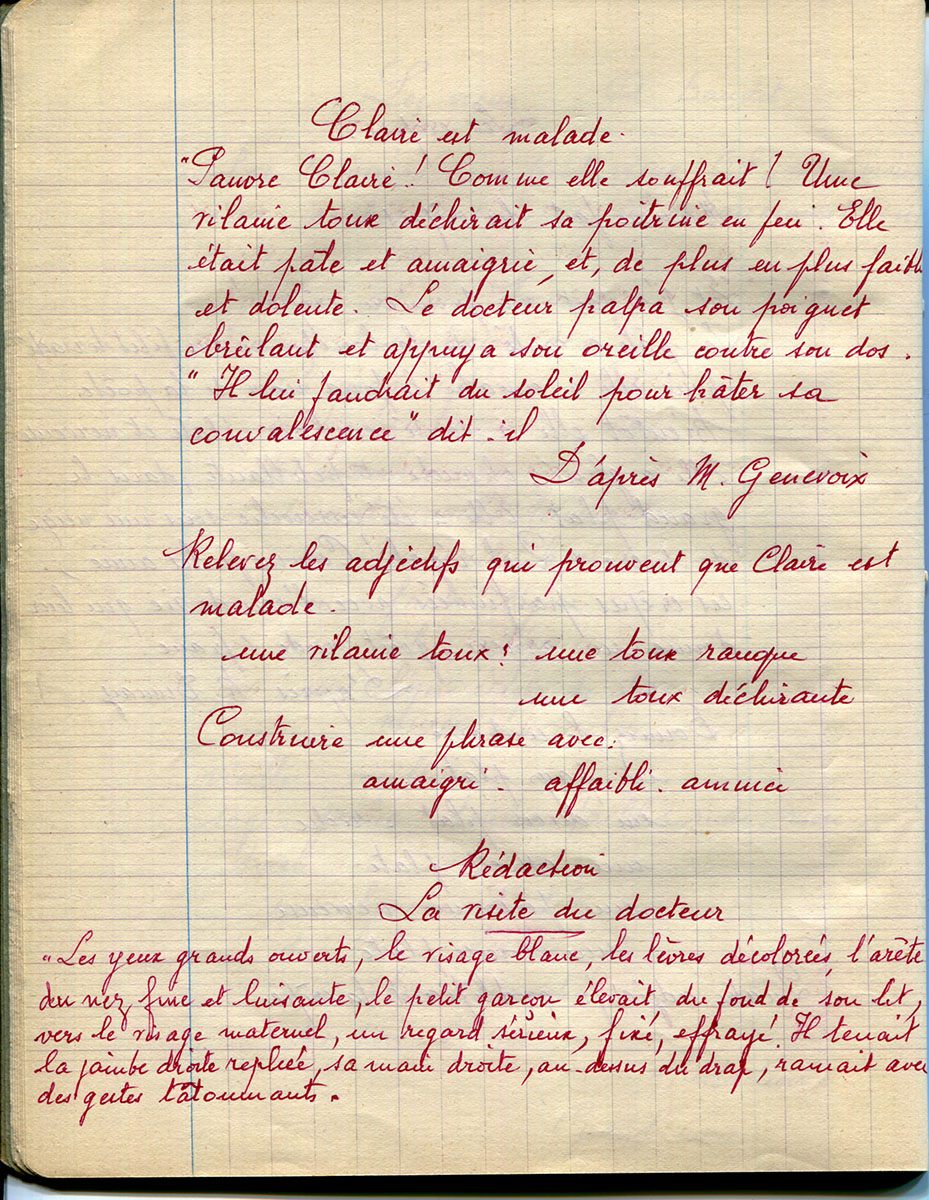 Claire est malade.
"Pauvre Claire ! Comme elle souffrait ! Une
vilaine toux déchirait sa poitrine en feu. Elle
était pâle et amaigrie, et, de plus en plus faible
et dolente. Le docteur palpa son poignet
brûlant et appuya son oreille contre son dos.
"Il lui faudrait du soleil pour hâter sa
convalescence" dit-il
D'après M. Genevoix
Relevez les adjectifs qui prouvent que Claire est
malade.
une vilaine toux : une toux rauque
une toux déchirante
Construire une phrase avec :
amaigri - affaibli. aminci
Rédaction
La visite du docteur
"Les yeux grands ouverts, le visage blanc, les lèvres décolorées, l'arête
du nez fine et luisante, le petit garçon élevait, du fond de son lit,
vers le visage maternel, un regard sérieux, fixé, effrayé. Il tenait
la jambe droite repliée, sa main droite, au-dessus du drap, ramait avec
des gestes tâtonnants.